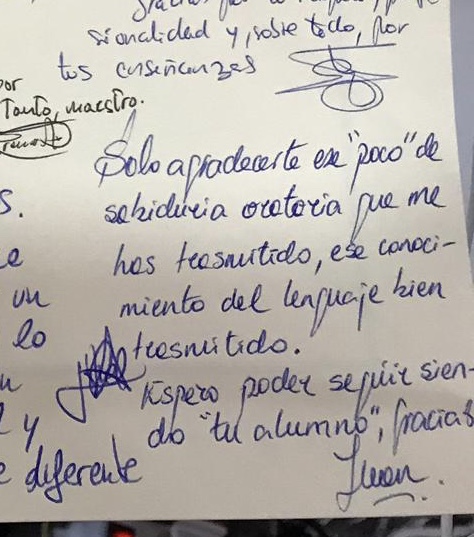 sionalidad y, sobre todo, por
tus enseñanzas
por
Tanto, maestro.
Solo agradecerte ese "poco" de
sabiduria oratoria que me
has trasmitido, ese conoci-
miento del lenguaje bien
trasmitido.
Espero poder seguir sien-
do "tu alumno", gracias
Juan.
s.
e
un
lo
y
e diferente